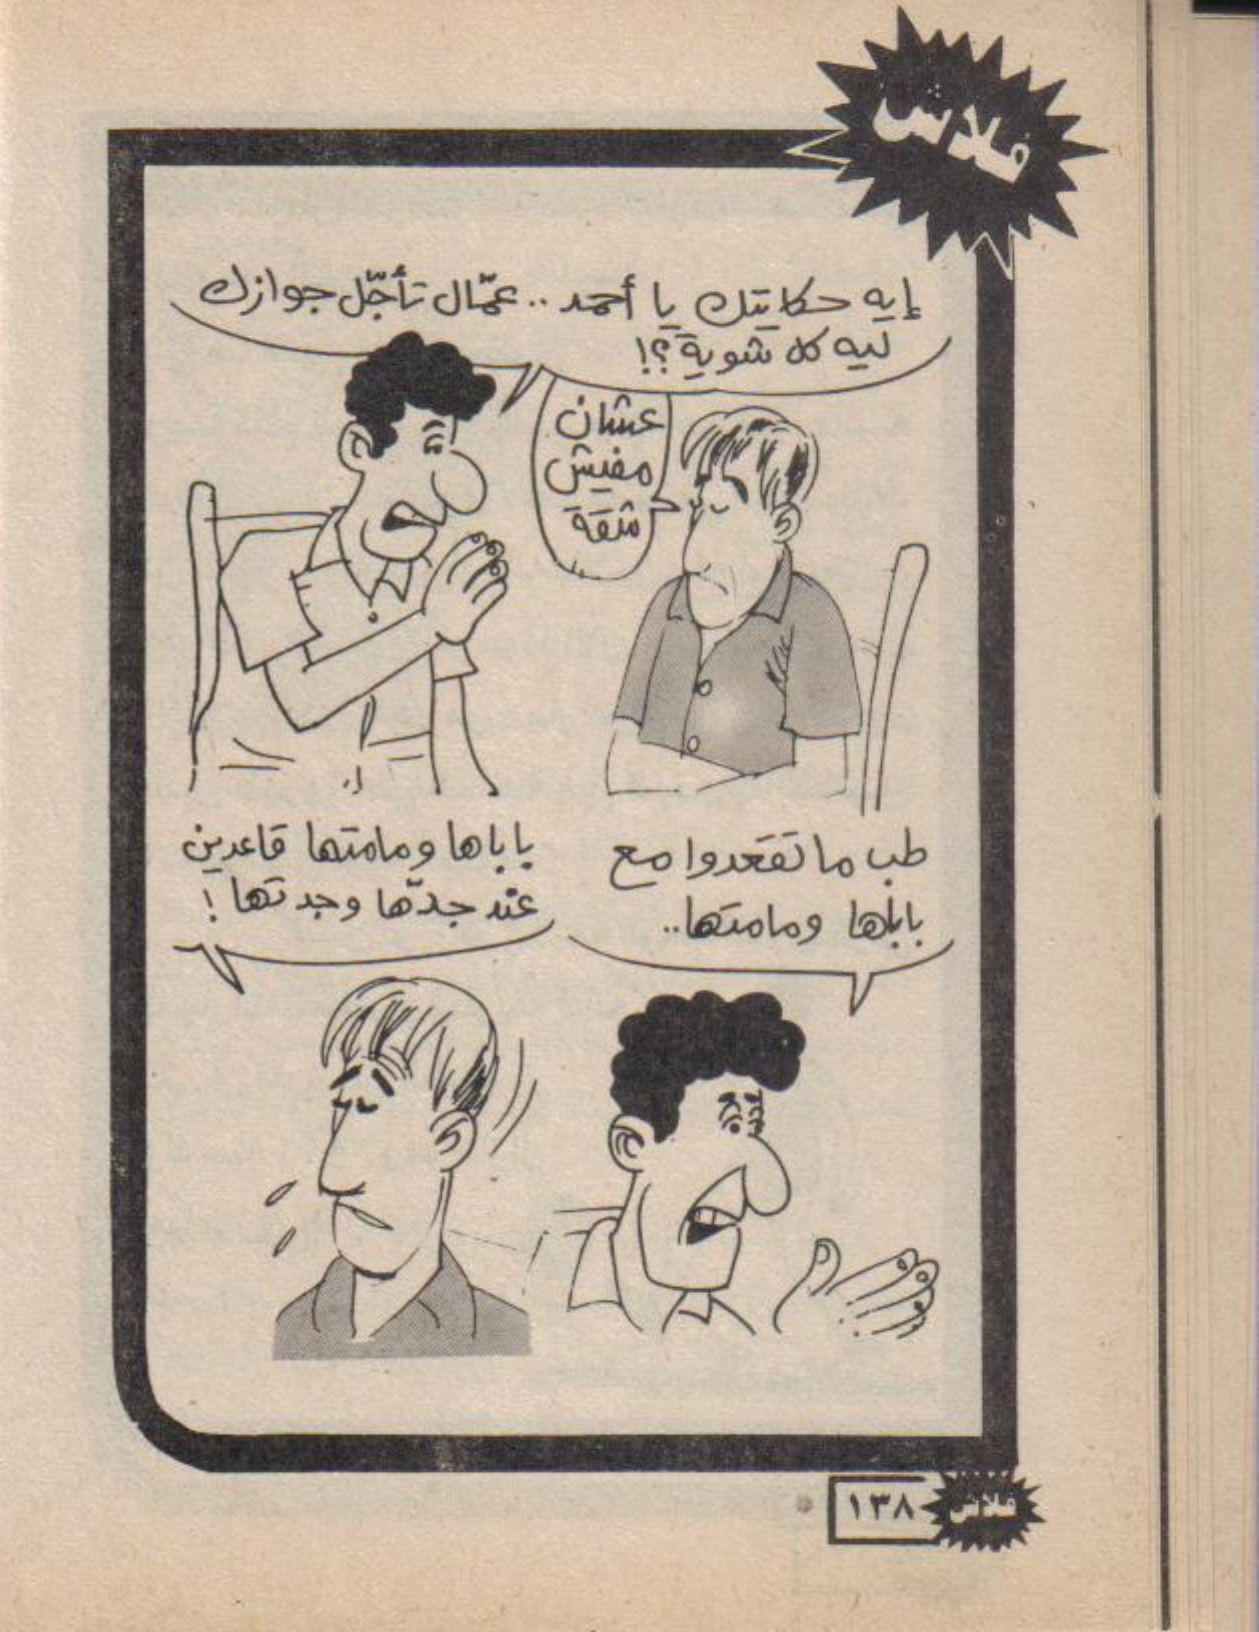 فلاش
إيه حكايتك يا أحمد .. عمّال تأجّل جوازك
ليه كل شوية؟!
عشان
مفيش
شقة
طب ما تقعدوا مع
باباها ومامتها..
باباها ومامتها قاعدين
عند جدّها وجدتها!
١٣٨
فلاش